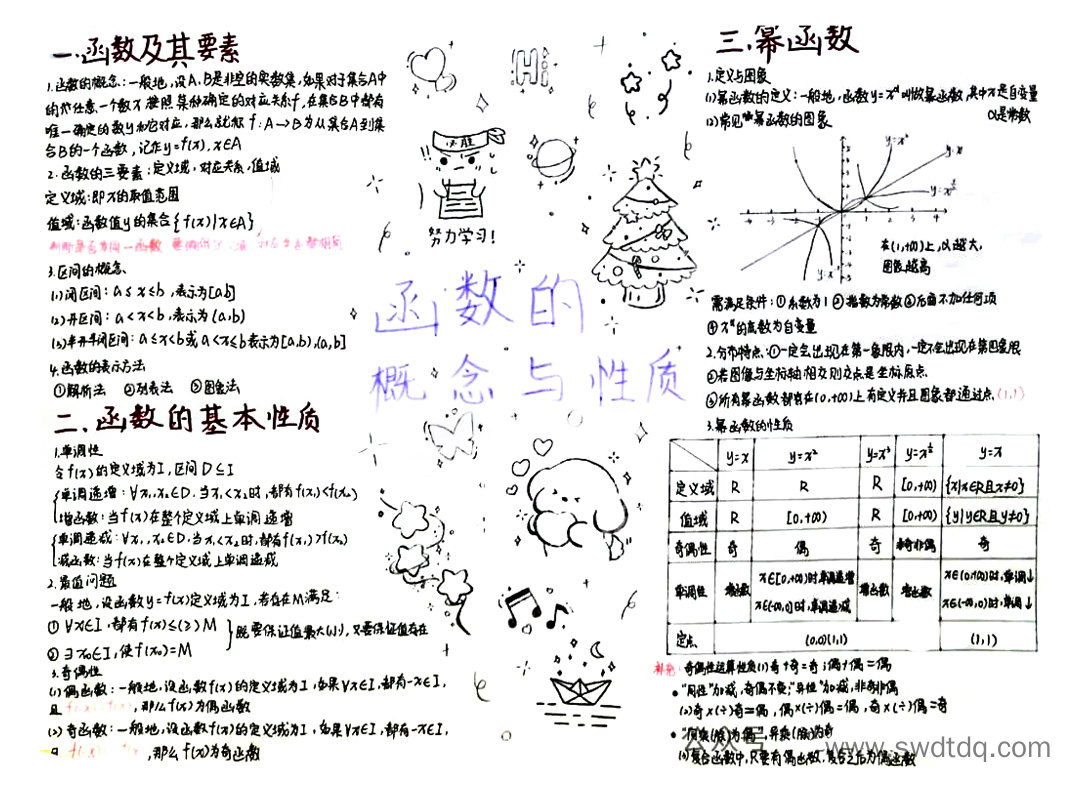 一.函数及其要素
1.函数的概念:一般地,设A、B是非空的实数集,如果对于集合A中
的任意一个数x,按照某种确定的对应关系f,在集合B中都有
唯一确定的数y和它对应,那么就称f:A→B为从集合A到集
合B的一个函数,记作y=f(x),x∈A
2.函数的三要素:定义域,对应关系,值域
定义域:即x的取值范围
值域:函数值y的集合{f(x)|x∈A}
3.区间的概念
(1)闭区间:a≤x≤b,表示为[a,b]
(2)开区间:a<x<b,表示为(a,b)
(3)半开半闭区间:a≤x<b或a<x≤b表示为[a,b),(a,b]
4.函数的表示方法
①解析法 ②列表法 ③图象法
二.函数的基本性质
1.单调性
令f(x)的定义域为I,区间D⊆I
单调递增:∀x₁,x₂∈D.当x₁<x₂时,都有f(x₁)<f(x₂)
增函数:当f(x)在整个定义域上单调递增
单调递减:∀x₁,x₂∈D.当x₁<x₂时,都有f(x₁)>f(x₂)
减函数:当f(x)在整个定义域上单调递减
2.最值问题
一般地,设函数y=f(x)定义域为I,若存在M满足:
①∀x∈I,都有f(x)≤(≥)M
②∃x₀∈I,使f(x₀)=M
既要保证值最大(小),又要保证值存在
3.奇偶性
(1)偶函数:一般地,设函数f(x)的定义域为I,如果∀x∈I,都有-x∈I,
且 ,那么f(x)为偶函数
(2)奇函数:一般地,设函数f(x)的定义域为I,如果∀x∈I,都有-x∈I,
,那么f(x)为奇函数
Hi
必胜
努力学习!
函数的
概念与性质
三.幂函数
1.定义与图象
(1)幂函数的定义:一般地,函数y=x^α叫做幂函数,其中x是自变量
α是常数
(2)常见幂函数的图象
y=x²
y=x
y=x^½
在(1,+∞)上,α越大,
图象越高
需满足条件:①系数为1 ②指数为常数③后面不加任何项
④x^α的底数为自变量
2.分布特点:①一定会出现在第一象限内,一定不会出现在第四象限
②若图像与坐标轴相交则交点是坐标原点
③所有幂函数都有在(0,+∞)上有定义并且图象都通过点(1,1)
3.幂函数的性质
y=x y=x² y=x³ y=x^½ y=x
定义域 R R R [0,+∞) {x|x∈R且x≠0}
值域 R [0,+∞) R [0,+∞) {y|y∈R且y≠0}
奇偶性 奇 偶 奇 非奇非偶 奇
单调性 增函数 x∈[0,+∞)时,单调递增 增函数 增函数 x∈(0,+∞)时,单调↓
x∈(-∞,0)时,单调递减 x∈(-∞,0)时,单调↓
定点 (0,0)(1,1) (1,1)
补充:奇偶性运算性质(1)奇+奇=奇;偶+偶=偶
"同性"加减,奇偶不变;"异性"加减,非奇非偶
(2)奇×(÷)奇=偶,偶×(÷)偶=偶,奇×(÷)偶=奇
"同乘(除)为偶",异乘(除)为奇
(3)复合函数中,只要有偶函数,复合之后为偶函数
公众号 www.swdtdq.com